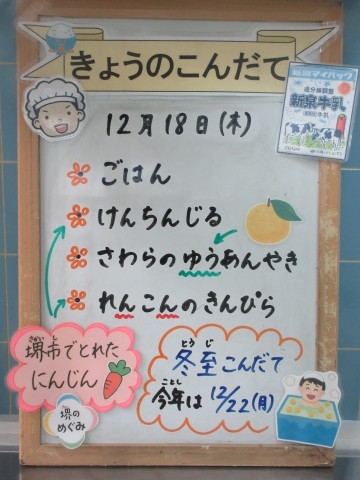 きょうのこんだて
12月18日(木)
ごはん
けんちんじる
さわらのゆうあんやき
れんこんのきんぴら
新泉牛乳
堺市でとれた
さかいし
にんじん
堺の
めぐみ
とうじ
冬至こんだて
ことし
今年は12/22(月)